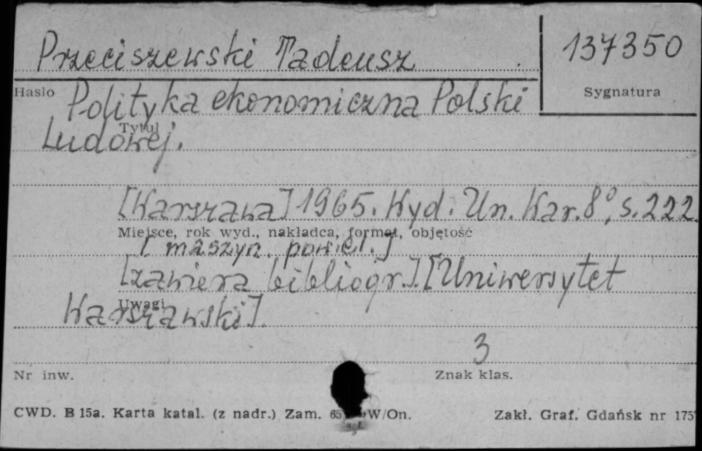 Przeciszewski Tadeusz
137350
Hasło
Sygnatura
Polityka ekonomiczna Polski
Tytuł
Ludowej.
[Warszawa] 1965. Wyd. Un. War. 8°, s. 222.
Miejsce, rok wyd., nakładca, format, objętość
[maszyn. powiel.]
[zawiera bibliogr.]. [Uniwersytet
Uwagi
Warszawski].
3
Nr inw.
Znak klas.
CWD. B 15a. Karta katal. (z nadr.) Zam. W/On.
Zakł. Graf. Gdańsk nr 175